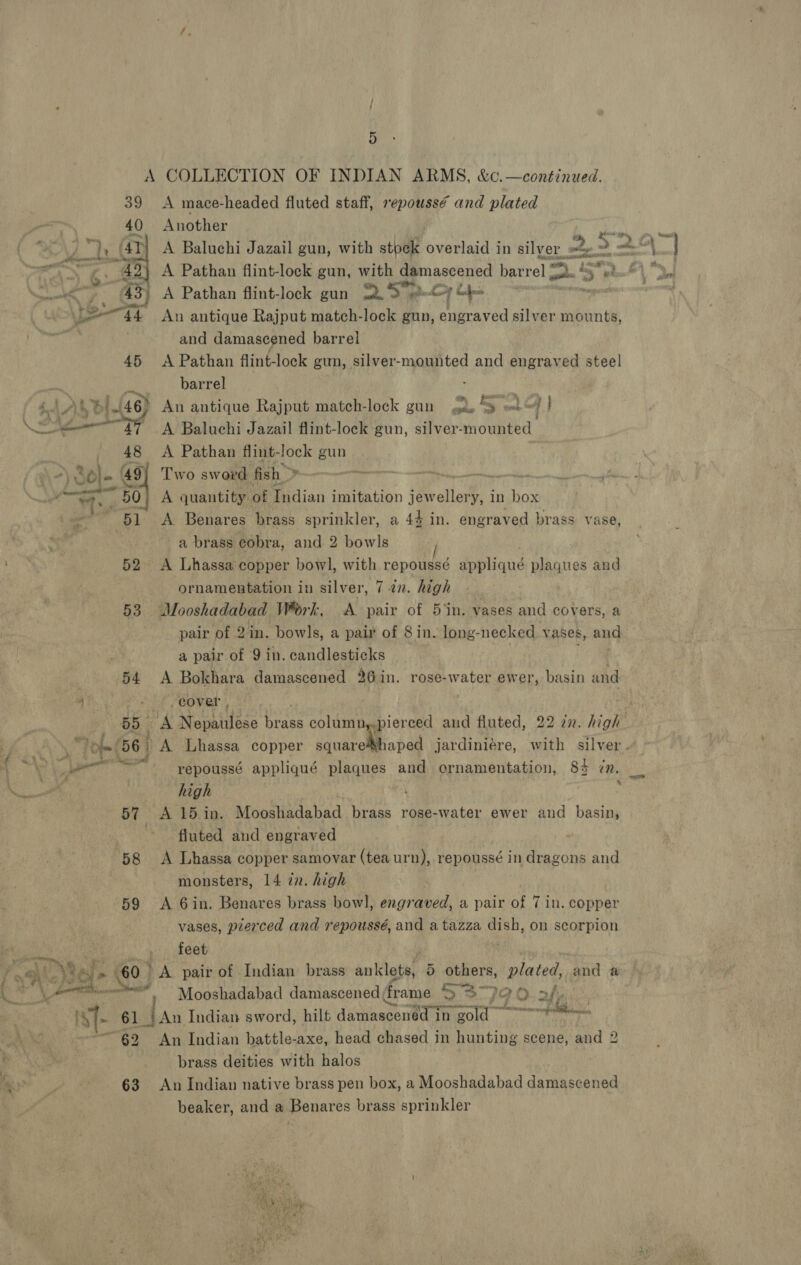 5
A COLLECTION OF INDIAN ARMS, &c.—continued.
39 A mace-headed fluted staff, repoussé and plated
40 Another
41 A Baluchi Jazail gun, with stock overlaid in silver
42 A Pathan flint-lock gun, with damascened barrel
43 A Pathan flint-lock gun
44 An antique Rajput match-lock gun, engraved silver mounts,
and damascened barrel
45 A Pathan flint-lock gun, silver-mounted and engraved steel
barrel
46 An antique Rajput match-lock gun
47 A Baluchi Jazail flint-lock gun, silver-mounted
48 A Pathan flint-lock gun
49 Two sword fish
50 A quantity of Indian imitation jewellery, in box
51 A Benares brass sprinkler, a 4½ in. engraved brass vase,
a brass cobra, and 2 bowls
52 A Lhassa copper bowl, with repoussé appliqué plaques and
ornamentation in silver, 7 in. high
53 Mooshadabad Work, A pair of 5 in. vases and covers, a
pair of 2 in. bowls, a pair of 8 in. long-necked vases, and
a pair of 9 in. candlesticks
54 A Bokhara damascened 26 in. rose-water ewer, basin and
cover
55 A Nepaulese brass column, pierced and fluted, 22 in. high
56 A Lhassa copper square-shaped jardinière, with silver
repoussé appliqué plaques and ornamentation, 8½ in.
high
57 A 15 in. Mooshadabad brass rose-water ewer and basin,
fluted and engraved
58 A Lhassa copper samovar (tea urn), repoussé in dragons and
monsters, 14 in. high
59 A 6 in. Benares brass bowl, engraved, a pair of 7 in. copper
vases, pierced and repoussé, and a tazza dish, on scorpion
feet
60 A pair of Indian brass anklets, 5 others, plated, and a
Mooshadabad damascened frame 53790
61 An Indian sword, hilt damascened in gold
62 An Indian battle-axe, head chased in hunting scene, and 2
brass deities with halos
63 An Indian native brass pen box, a Mooshadabad damascened
beaker, and a Benares brass sprinkler